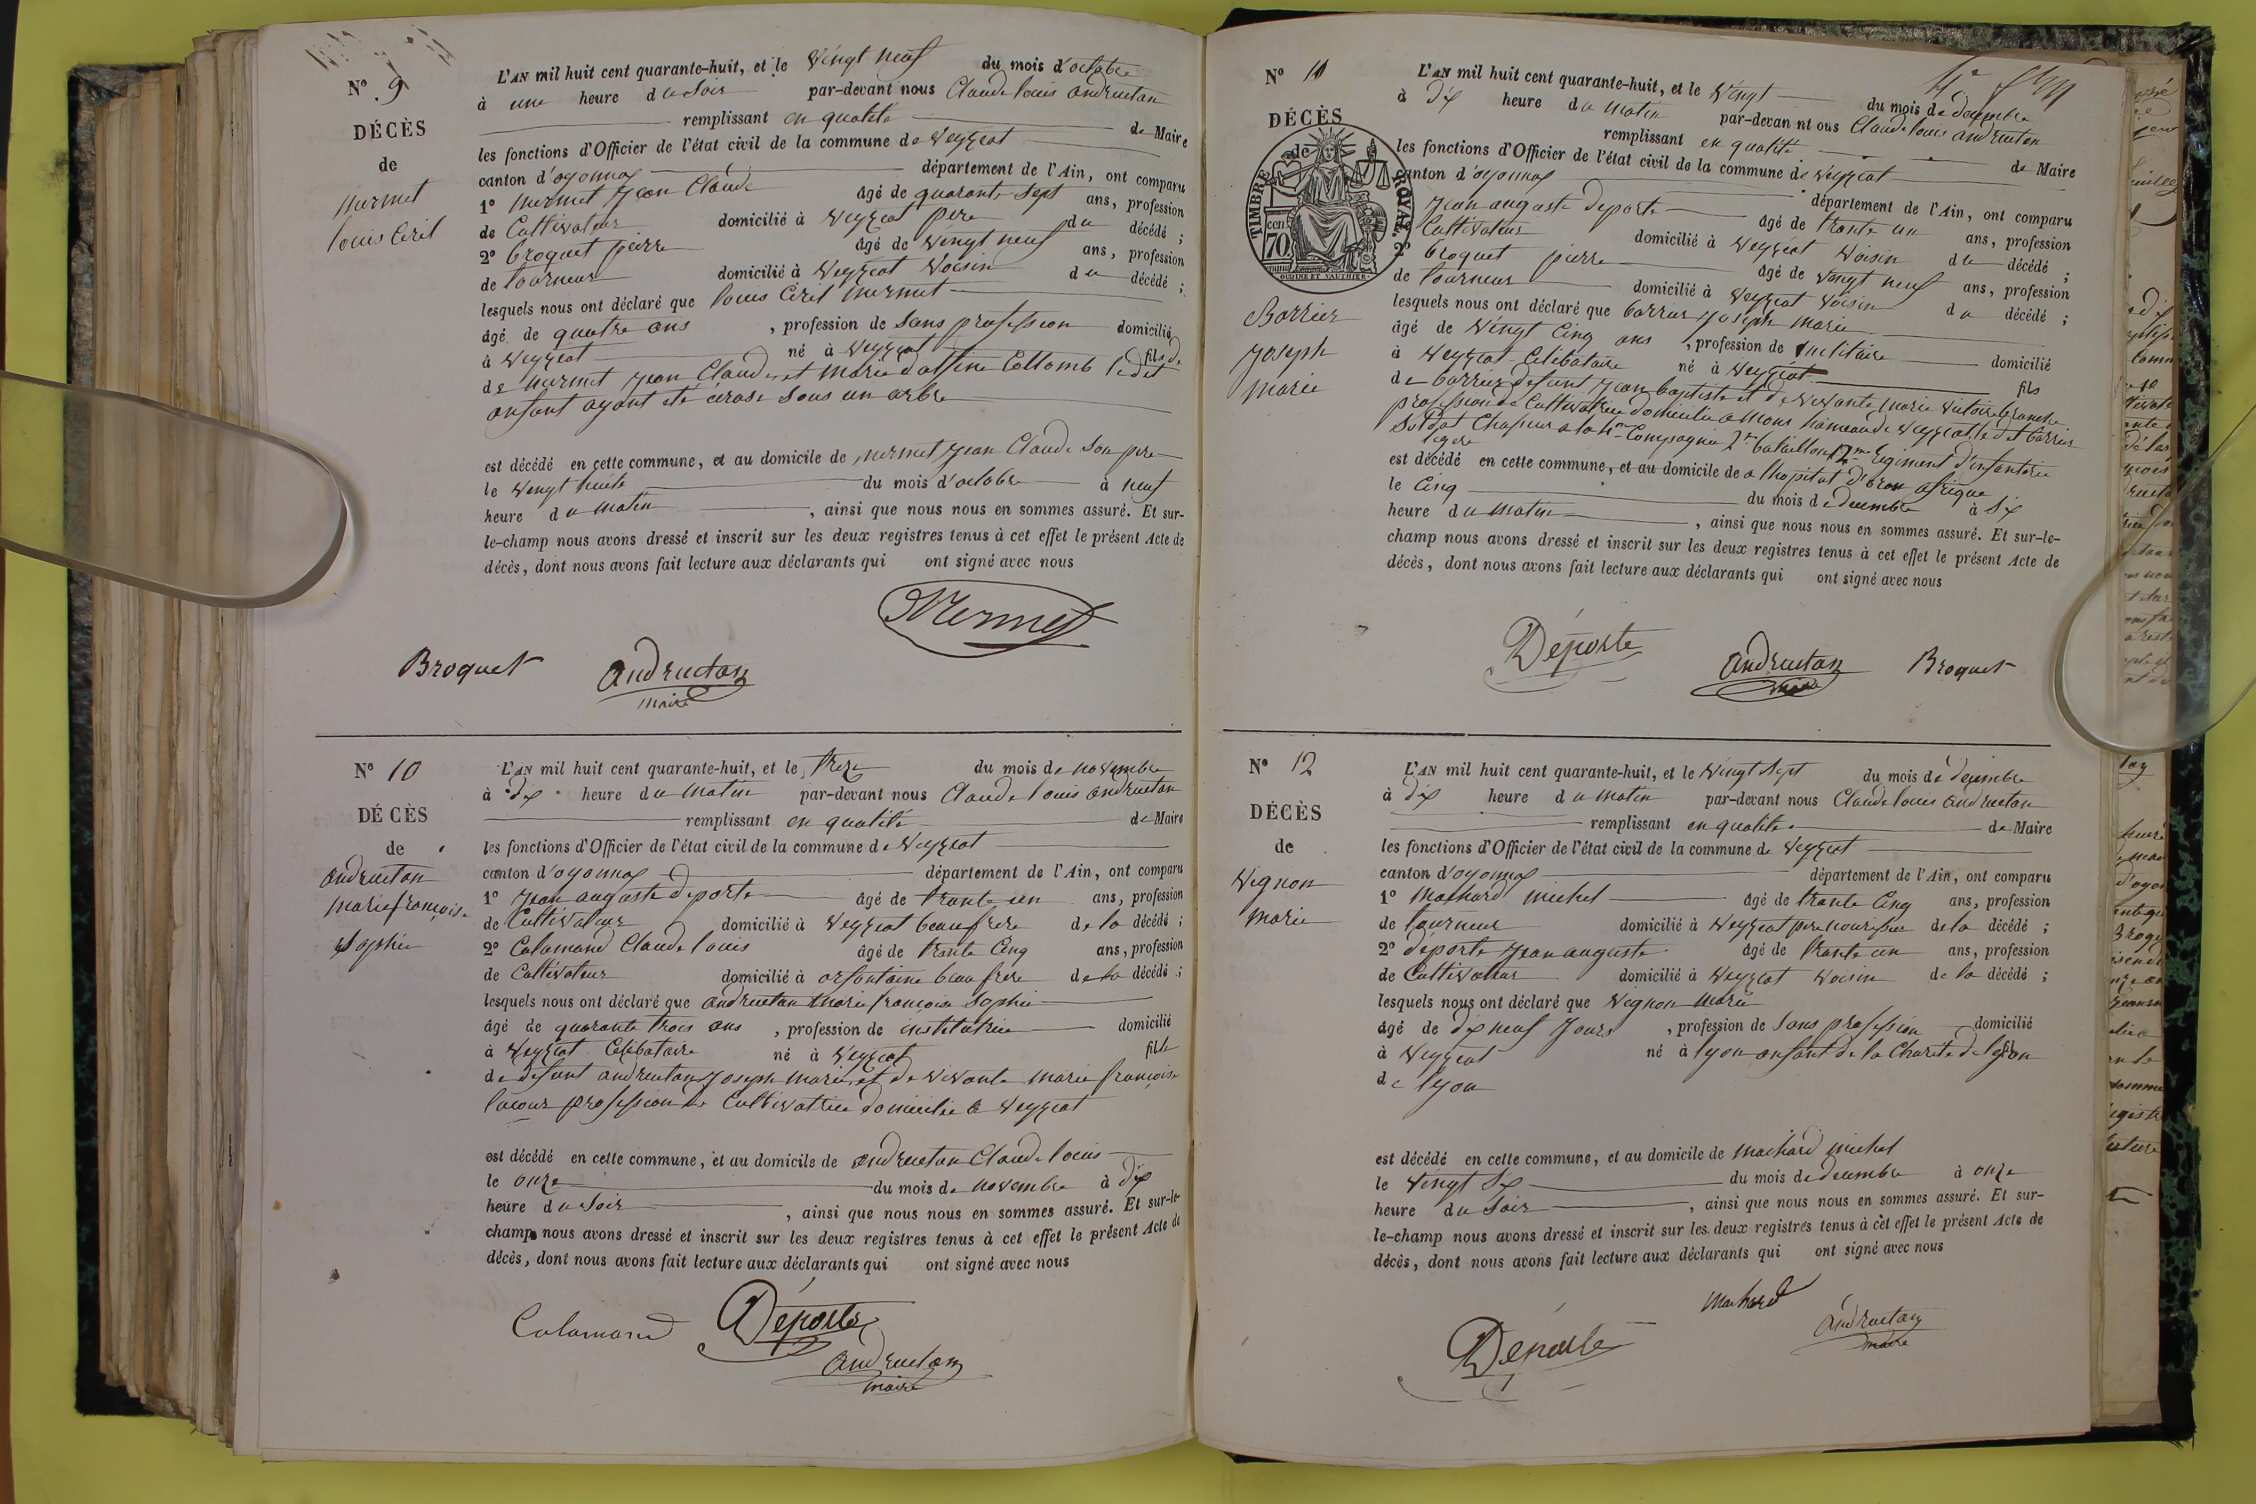 Nº 9
DÉCÈS
de
Mermet
louis Ciril
L'AN mil huit cent quarante-huit, et le Vingt neuf du mois d'octobre
à une heure du Soir par-devant nous Claude louis andructan
remplissant en qualité de Maire
les fonctions d'Officier de l'état civil de la commune de Veyziat
canton d'oyonnax département de l'Ain, ont comparu
1º Mermet Jean Claude âgé de quarante Sept ans, profession
de Cultivateur domicilié à Veyziat père du décédé ;
2º Broquet pierre âgé de Vingt neuf ans, profession
de tourneur domicilié à Veyziat Voisin du décédé ;
lesquels nous ont déclaré que louis Ciril Mermet
âgé de quatre ans , profession de Sans profession domicilié
à Veyziat né à Veyziat fils de
de Mermet Jean Claude, et Marie Collomb ledit
enfant ayant été écrasé Sous un arbre
est décédé en cette commune, et au domicile de Mermet Jean Claude Son père
le Vingt huit du mois d'octobre à neuf
heure du matin , ainsi que nous nous en sommes assuré. Et sur-
le-champ nous avons dressé et inscrit sur les deux registres tenus à cet effet le présent Acte de
décès, dont nous avons fait lecture aux déclarants qui ont signé avec nous
Mermet
Broquet andructan
maire
Nº 10
DÉCÈS
de
andructan
Marie françoise
Sophie
L'AN mil huit cent quarante-huit, et le treze du mois de novembre
à dix heure du matin par-devant nous Claude louis andructan
remplissant en qualité de Maire
les fonctions d'Officier de l'état civil de la commune de Veyziat
canton d'oyonnax département de l'Ain, ont comparu
1º Jean auguste deporte âgé de trante un ans, profession
de Cultivateur domicilié à Veyziat beaufrere de la décédé ;
2º Calamand Claude louis âgé de trante Cinq ans, profession
de Cultivateur domicilié à orfontaine beau frere de la décédé ;
lesquels nous ont déclaré que andructan Marie françoise Sophie
âgé de quarante trois ans , profession de institutrice domicilié
à Veyziat Célibataire né à Veyziat fille
de defunt andructan Joseph Marie, et de Vivante Marie françoise
lacour profession de Cultivatrice domiciliée à Veyziat
est décédé en cette commune, et au domicile de andructan Claude louis
le onze du mois de novembre à dix
heure du Soir , ainsi que nous nous en sommes assuré. Et sur-le-
champ nous avons dressé et inscrit sur les deux registres tenus à cet effet le présent Acte de
décès, dont nous avons fait lecture aux déclarants qui ont signé avec nous
Calamand Déporte
andructan
maire
Nº 11
DÉCÈS
de
TIMBRE ROYAL
70 cen
Barrier
Joseph
Marie
L'AN mil huit cent quarante-huit, et le Vingt du mois de decembre
à Dix heure du matin par-devan nt ous Claude louis andructan
remplissant en qualité de Maire
les fonctions d'Officier de l'état civil de la commune de Veyziat
canton d'oyonnax département de l'Ain, ont comparu
Jean auguste deporte âgé de trante un ans, profession
Cultivateur domicilié à Veyziat Voisin du décédé ;
2º broquet pierre âgé de Vingt neuf ans, profession
de tourneur domicilié à Veyziat Voisin du décédé ;
lesquels nous ont déclaré que barrier Joseph Marie
âgé de Vingt Cinq ans , profession de Militaire domicilié
à Veyziat Célibataire né à Veyziat fils
de barrier defunt Jean baptiste et de Vivante Marie Victoire
profession de Cultivatrice domiciliée à Mons hameau de Veyziat, ledit barrier
Soldat Chasseur à la 4me Compagnie 2e bataillon 12me Régiment d'infanterie
légère
est décédé en cette commune, et au domicile de a lhopital d'oran afrique
le Cinq du mois de decembre à Six
heure du matin , ainsi que nous nous en sommes assuré. Et sur-le-
champ nous avons dressé et inscrit sur les deux registres tenus à cet effet le présent Acte de
décès, dont nous avons fait lecture aux déclarants qui ont signé avec nous
Déporte andructan Broquet
maire
Nº 12
DÉCÈS
de
Vignon
Marie
L'AN mil huit cent quarante-huit, et le Vingt Sept du mois de decembre
à dix heure du matin par-devant nous Claude louis andructan
remplissant en qualité de Maire
les fonctions d'Officier de l'état civil de la commune de Veyziat
canton d'oyonnax département de l'Ain, ont comparu
1º Machard michel âgé de trante Cinq ans, profession
de tourneur domicilié à Veyziat pere nourissier de la décédé ;
2º deporte Jean auguste âgé de trante un ans, profession
de Cultivateur domicilié à Veyziat Voisin de la décédé ;
lesquels nous ont déclaré que Vignon Marie
âgé de dix neuf Jours , profession de Sans profession domicilié
à Veyziat né à lyon enfant de la Charité de lyon
de lyon
est décédé en cette commune, et au domicile de Machard michel
le Vingt Six du mois de decembre à onze
heure du Soir , ainsi que nous nous en sommes assuré. Et sur-
le-champ nous avons dressé et inscrit sur les deux registres tenus à cet effet le présent Acte de
décès, dont nous avons fait lecture aux déclarants qui ont signé avec nous
Machard
Déporte andructan
maire